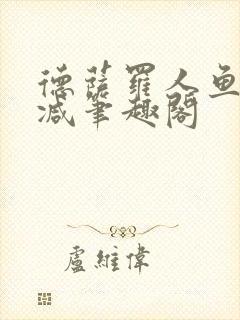 德薩羅人魚
減筆趣閣
盧維偉